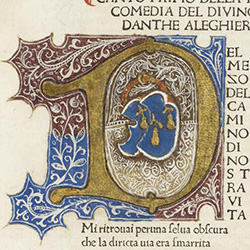 CANTO PRIMO DELLA
COMEDIA DEL DIVINO
DANTHE ALEGHIER
EL
MEZO
DEL
CA
MINO
DINO
STRA
VITA
Mi ritrouai per una selua obscura
che la diricta uia era smarrita